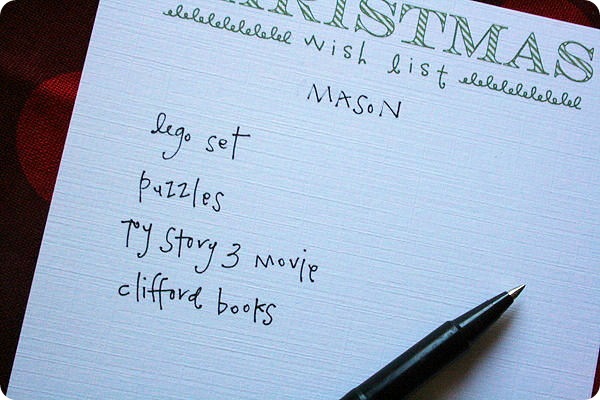 CHRISTMAS
wish list
MASON
lego set
puzzles
Toy Story 3 Movie
clifford books